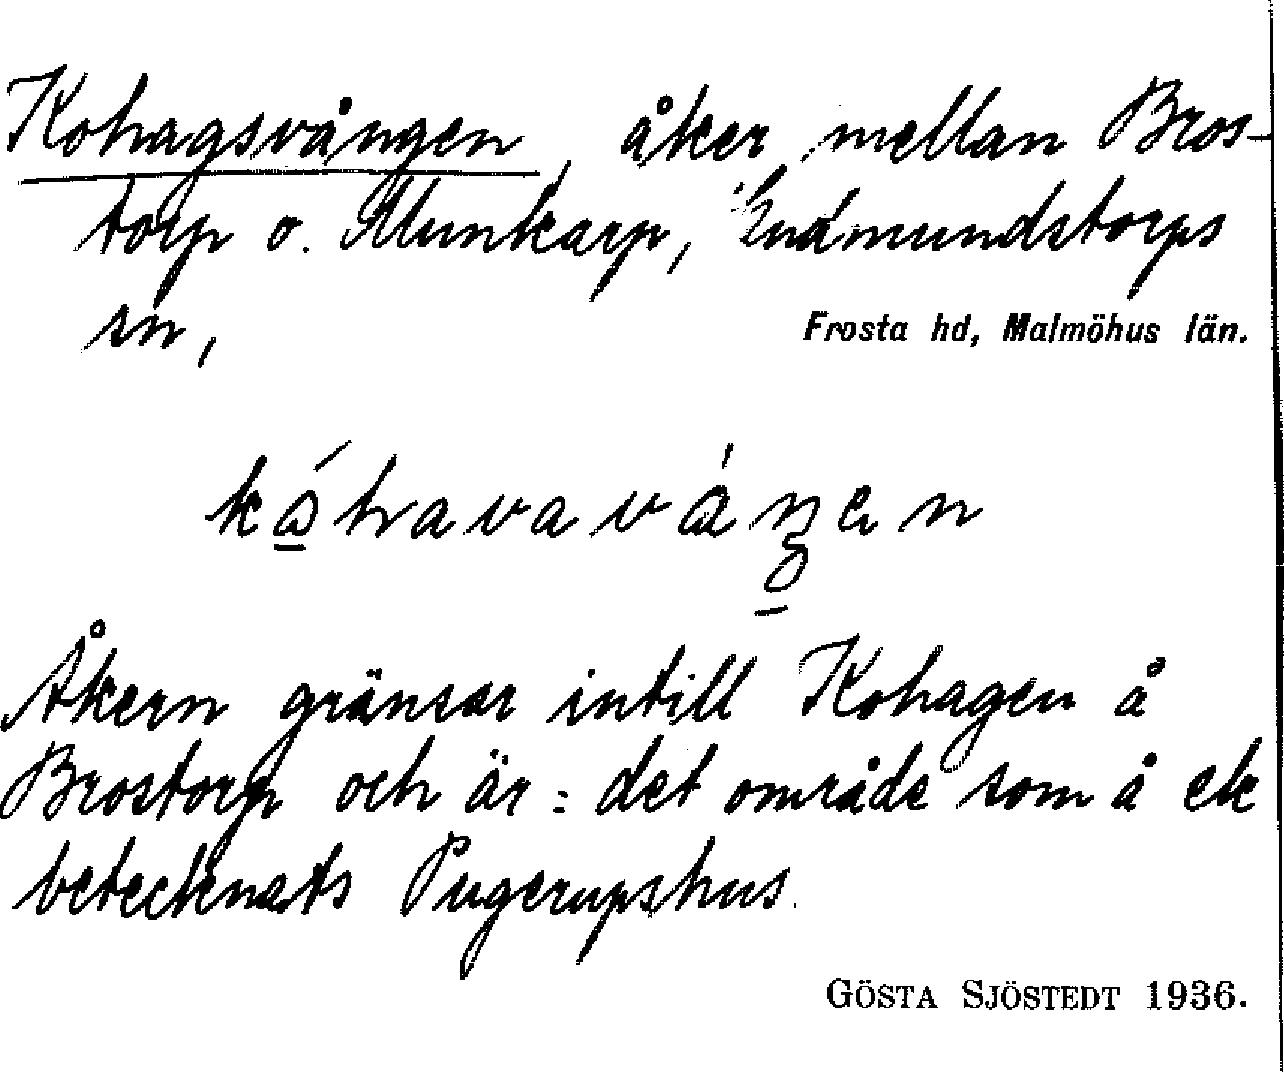 Kohagsvången, åker mellan Bros-
torp o. Munkarp, Gudmundstorps
sn,
Frosta hd, Malmöhus län.
Åkern gränsar intill Kohagen å
Brostorp och är = det område som å ek
betecknats Pugerupshus.
GÖSTA SJÖSTEDT 1936.